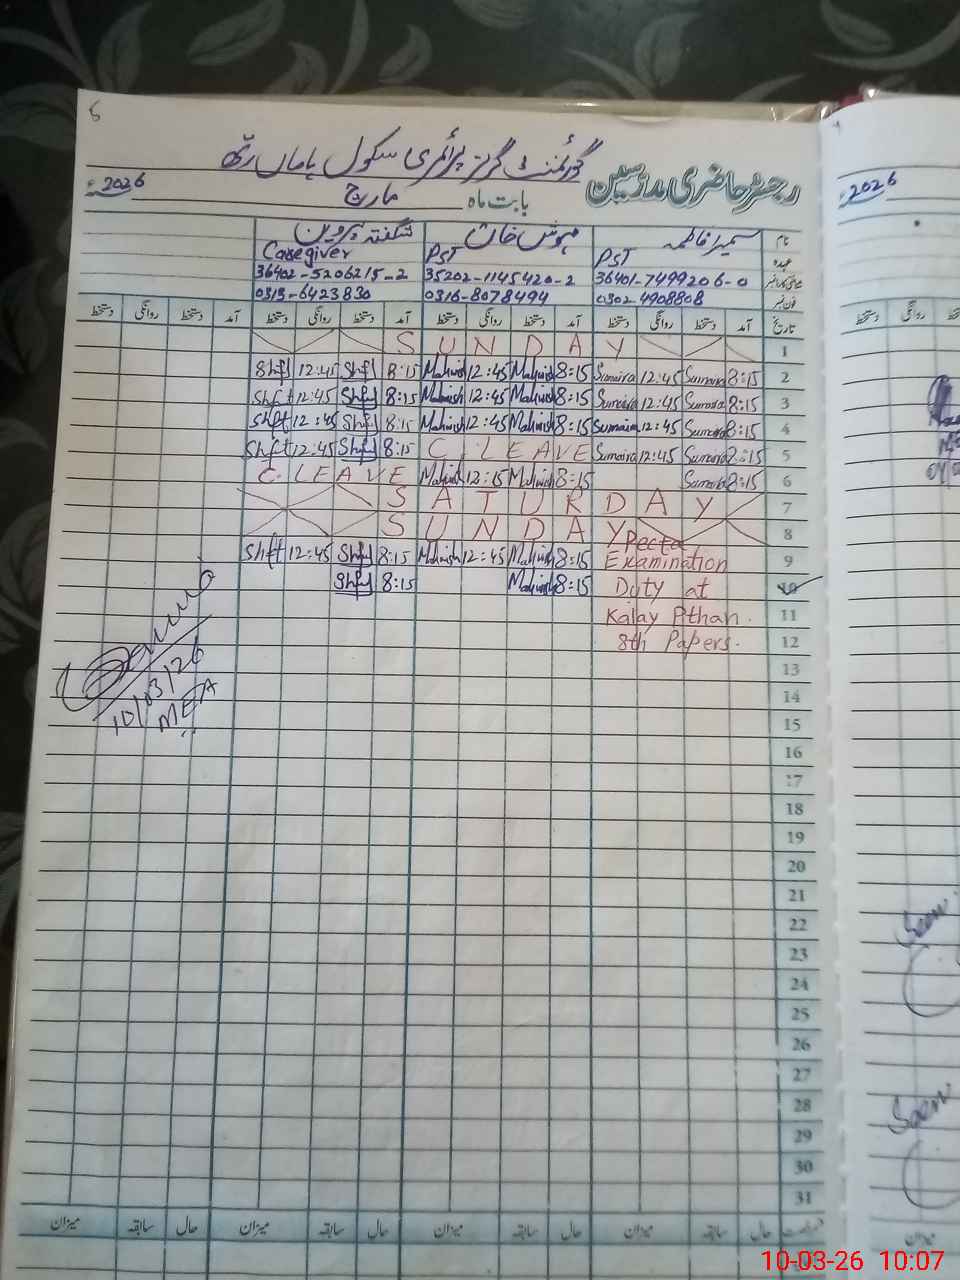 5
گورنمنٹ گرلز پرائمری سکول باماں رتھ
رجسٹر حاضری مدرسین
بابت ماہ مارچ 2026ء
نام سمیرا فاطمہ مہوش خان شگفتہ پروین
عہدہ PST PST Caregiver
36401-7499206-0 35202-1145420-2 36402-5206215-2
فون نمبر 0302-4908808 0316-8078494 0313-6423830
تاریخ آمد دستخط روانگی دستخط آمد دستخط روانگی دستخط آمد دستخط روانگی دستخط آمد دستخط روانگی دستخط
1 SUNDAY
2 8:15 Sumaira 12:45 Sumaira 8:15 Mahwish 12:45 Mahwish 8:15 Shft 12:45 Shft
3 8:15 Sumaira 12:45 Sumaira 8:15 Mahwish 12:45 Mahwish 8:15 Shft 12:45 Shft
4 8:15 Sumaira 12:45 Sumaira 8:15 Mahwish 12:45 Mahwish 8:15 Shft 12:45 Shft
5 8:15 Sumaira 12:45 Sumaira C. LEAVE 8:15 Shft 12:45 Shft
6 8:15 Sumaira 8:15 Mahwish 12:15 Mahwish C. LEAVE
7 SATURDAY
8 SUNDAY
9 Peeta Examination 8:15 Mahwish 12:45 Mahwish 8:15 Shft 12:45 Shft
10 Duty at 8:15 Mahwish 8:15 Shft
11 Kalay Pthan.
12 8th Papers.
13
14
15
16
17
18
19
20
21
22
23
24
25
26
27
28
29
30
31
10/03/26
MEA
حال سابقہ میزان حال سابقہ میزان حال سابقہ میزان حال سابقہ میزان
2026ء
روانگی دستخط
Seen
Seen
میزان
10-03-26 10:07